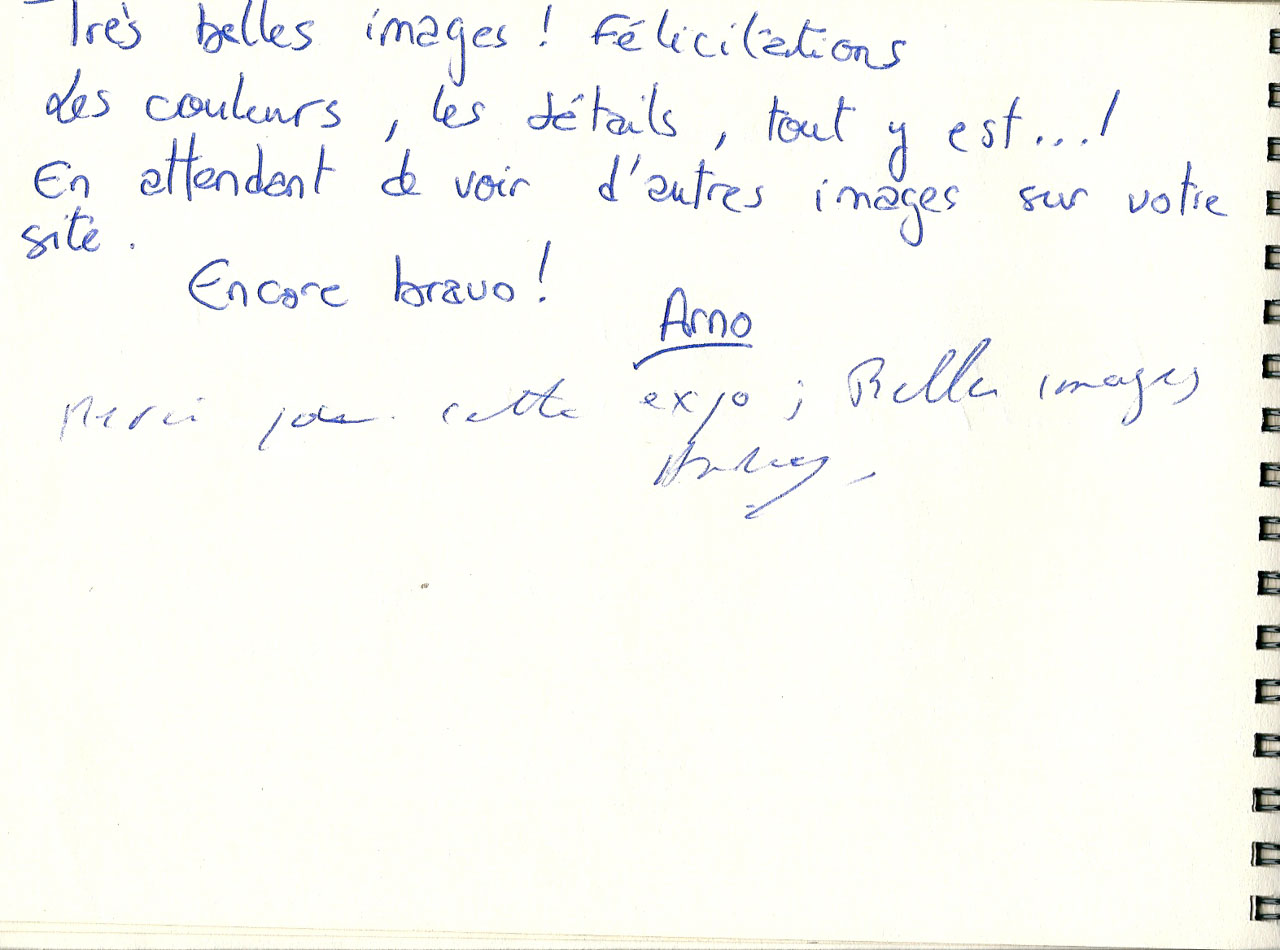 Très belles images ! Félicitations
Les couleurs, les détails, tout y est...!
En attendant de voir d'autres images sur votre
site.
Encore bravo !
Arno
Merci pour cette expo ; Belles images